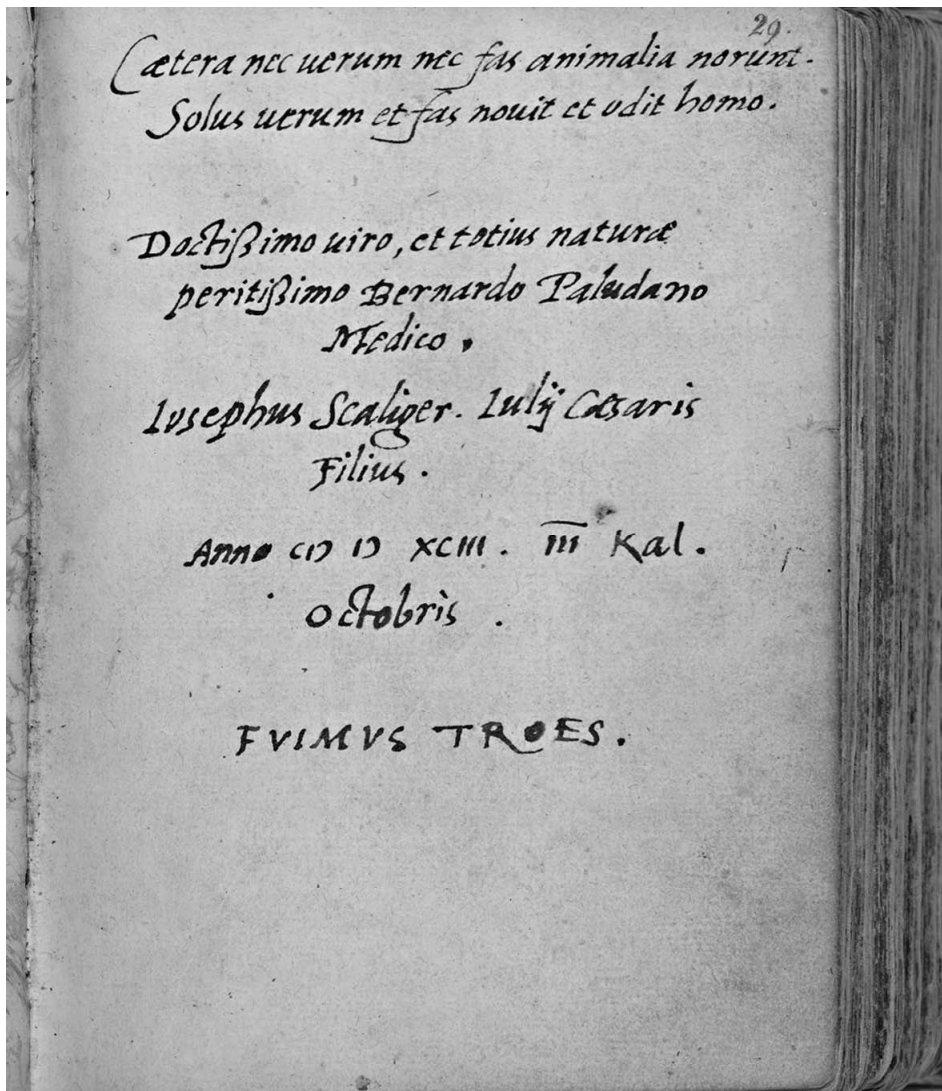 29.
Cætera nec uerum nec fas animalia norunt.
Solus uerum et fas nouit et odit homo.
Doctißimo uiro, et totius naturæ
peritißimo Bernardo Paludano
Medico.
Iosephus Scaliger. Iulij Cæsaris
Filius.
Anno CIↃ IↃ XCIII. I̅I̅I̅ Kal.
Octobris.
FVIMVS TROES.